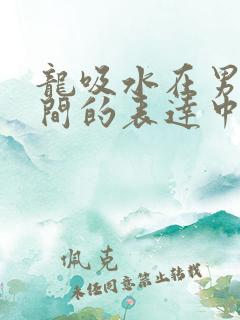 龍吸水在男
間的表達中
佩克
未經同意禁止轉載